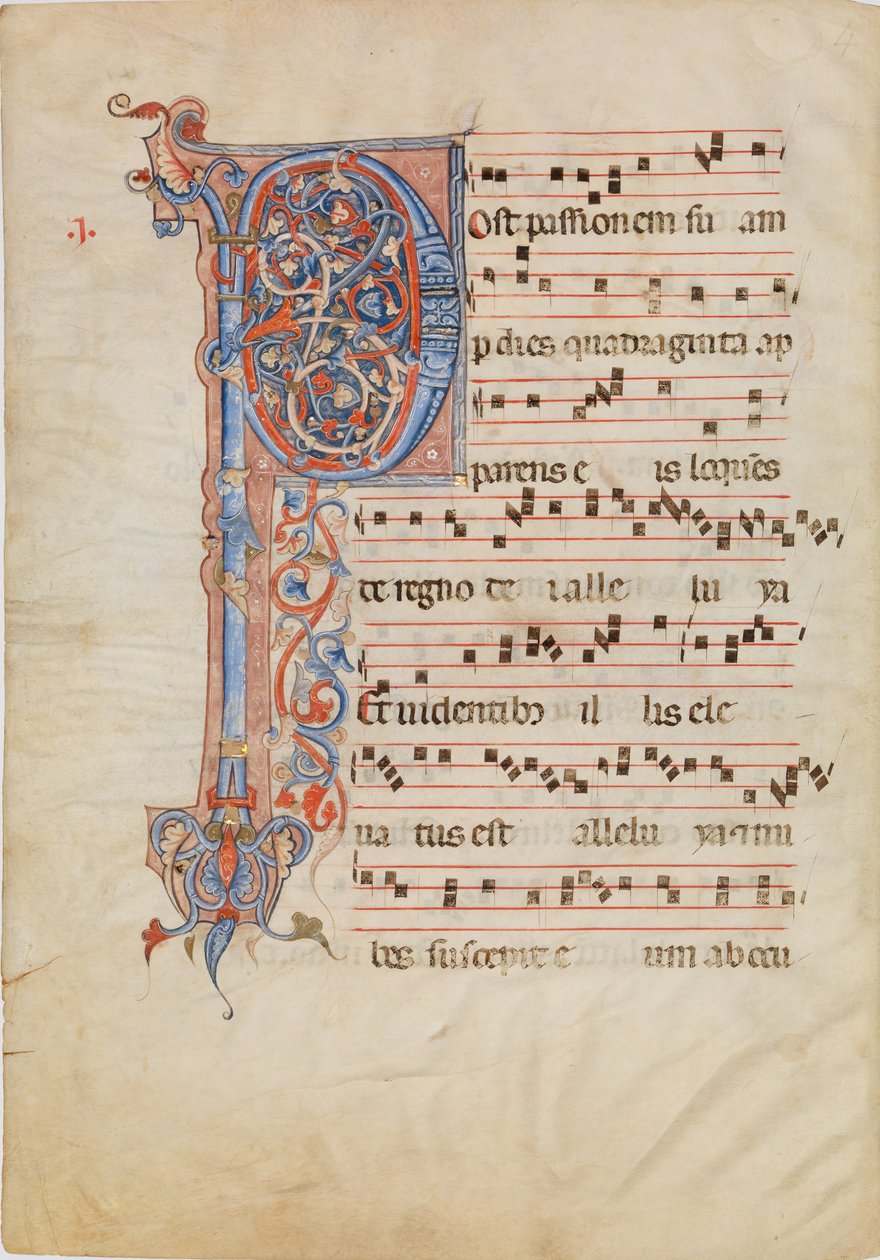 4
.j.
Post passionem su am
p dies quadraginta ap
parens e is loquēs
de regno de i alle lu ya
Et uidentibꝰ il lis ele
ua tus est allelu ya nu
bes suscepit e um ab ocu